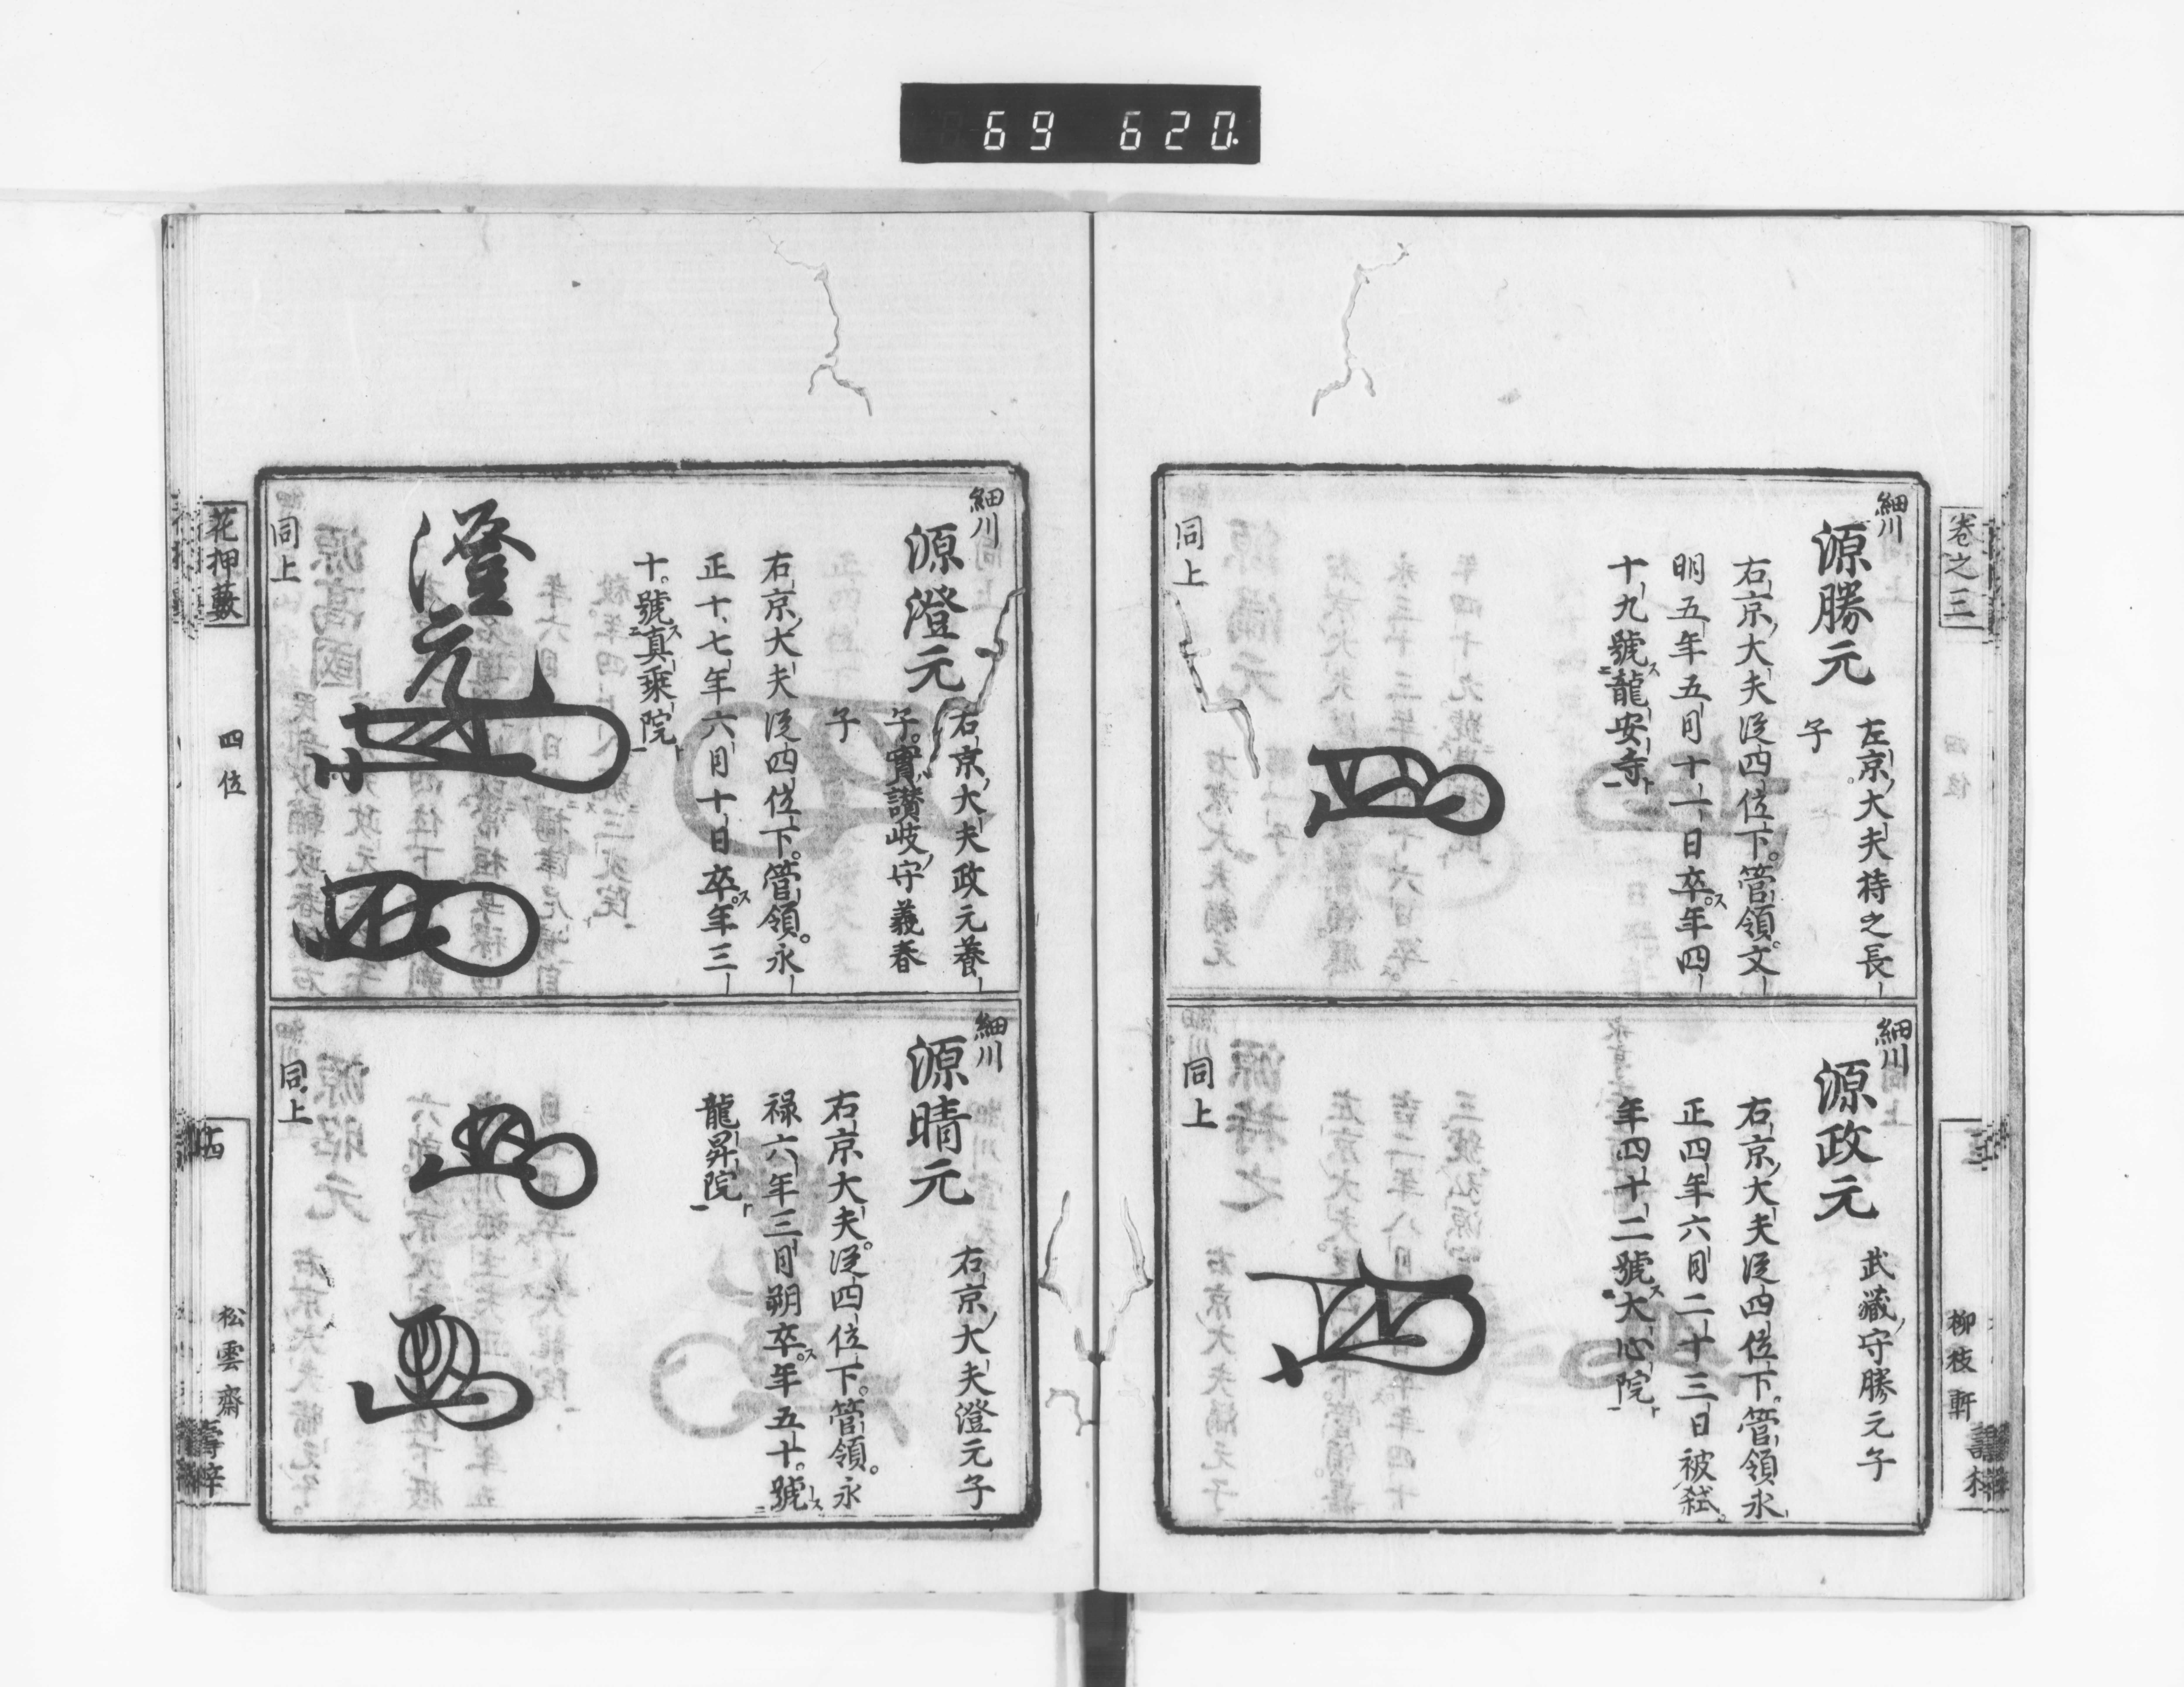 69 620
卷之三
柳枝軒
細川
源勝元
左京大夫持之長
子
右京大夫従四位下管領文
明五年五月十一日卒年四
十九號龍安寺
同上
細川
源政元
武藏守勝元子
右京大夫従四位下管領永
正四年六月二十三日被弑
年四十二號大心院
同上
細川
源澄元
右京大夫政元養
子實讃岐守義春
子
右京大夫従四位下管領永
正十七年六月十日卒年三
十號真乘院
澄元
同上
細川
源晴元
右京大夫澄元子
右京大夫従四位下管領永
禄六年三月朔卒年五十號
龍昇院
同上
花押藪
四位
松雲齋